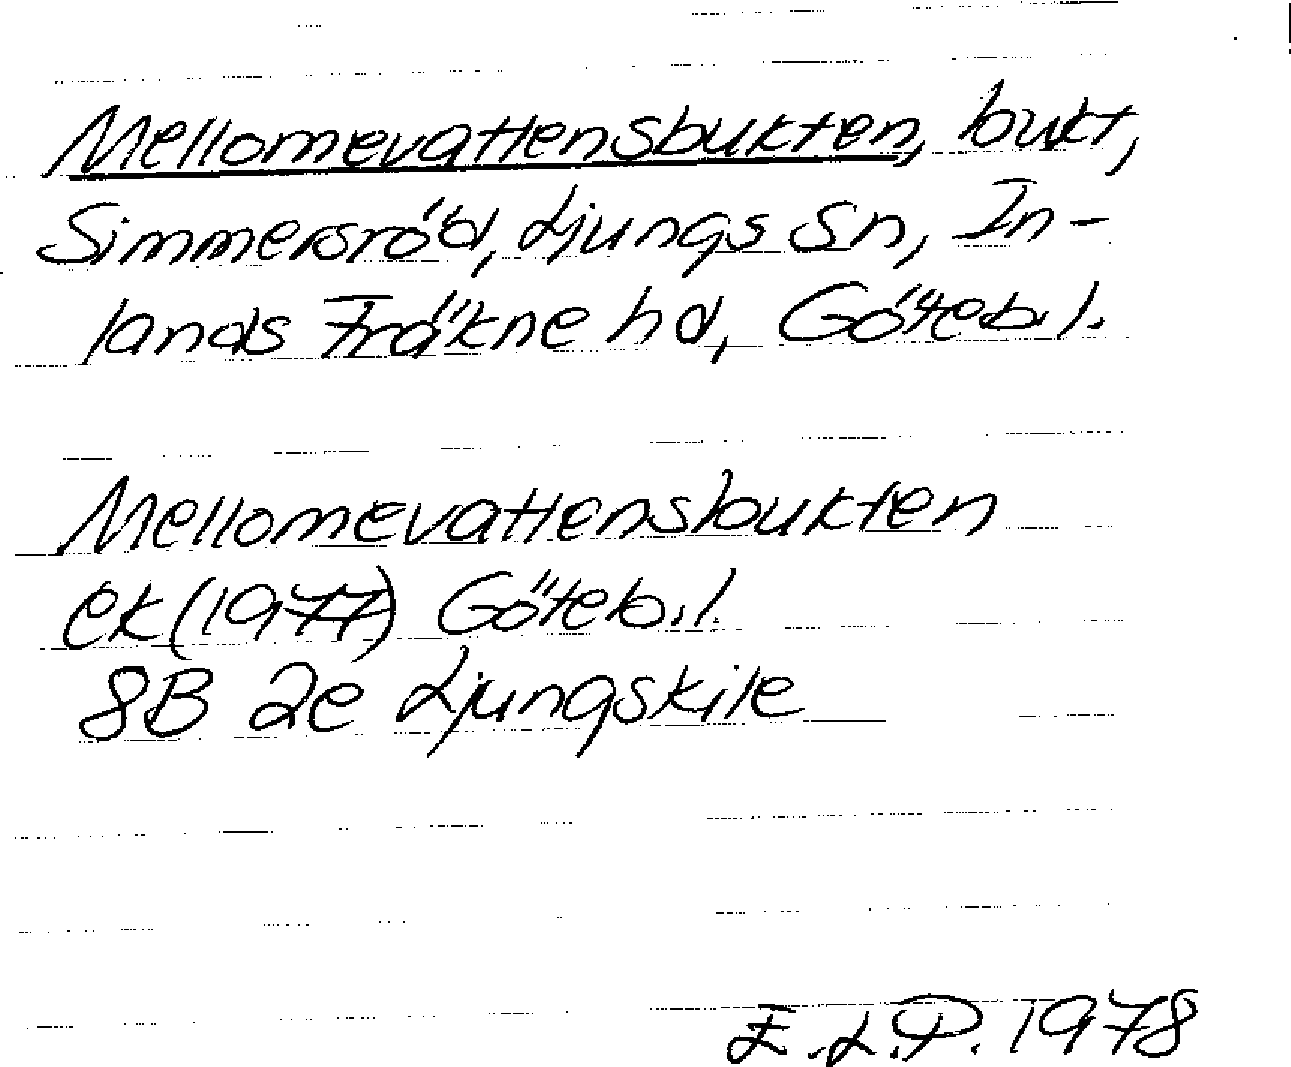 Mellomevattensbukten, bukt,
Simmersröd, Ljungs sn, In-
lands Fräkne hd, Göteb.l.
Mellomevattensbukten
ek (1977) Göteb.l.
8B 2e Ljungskile
E.L.P. 1978